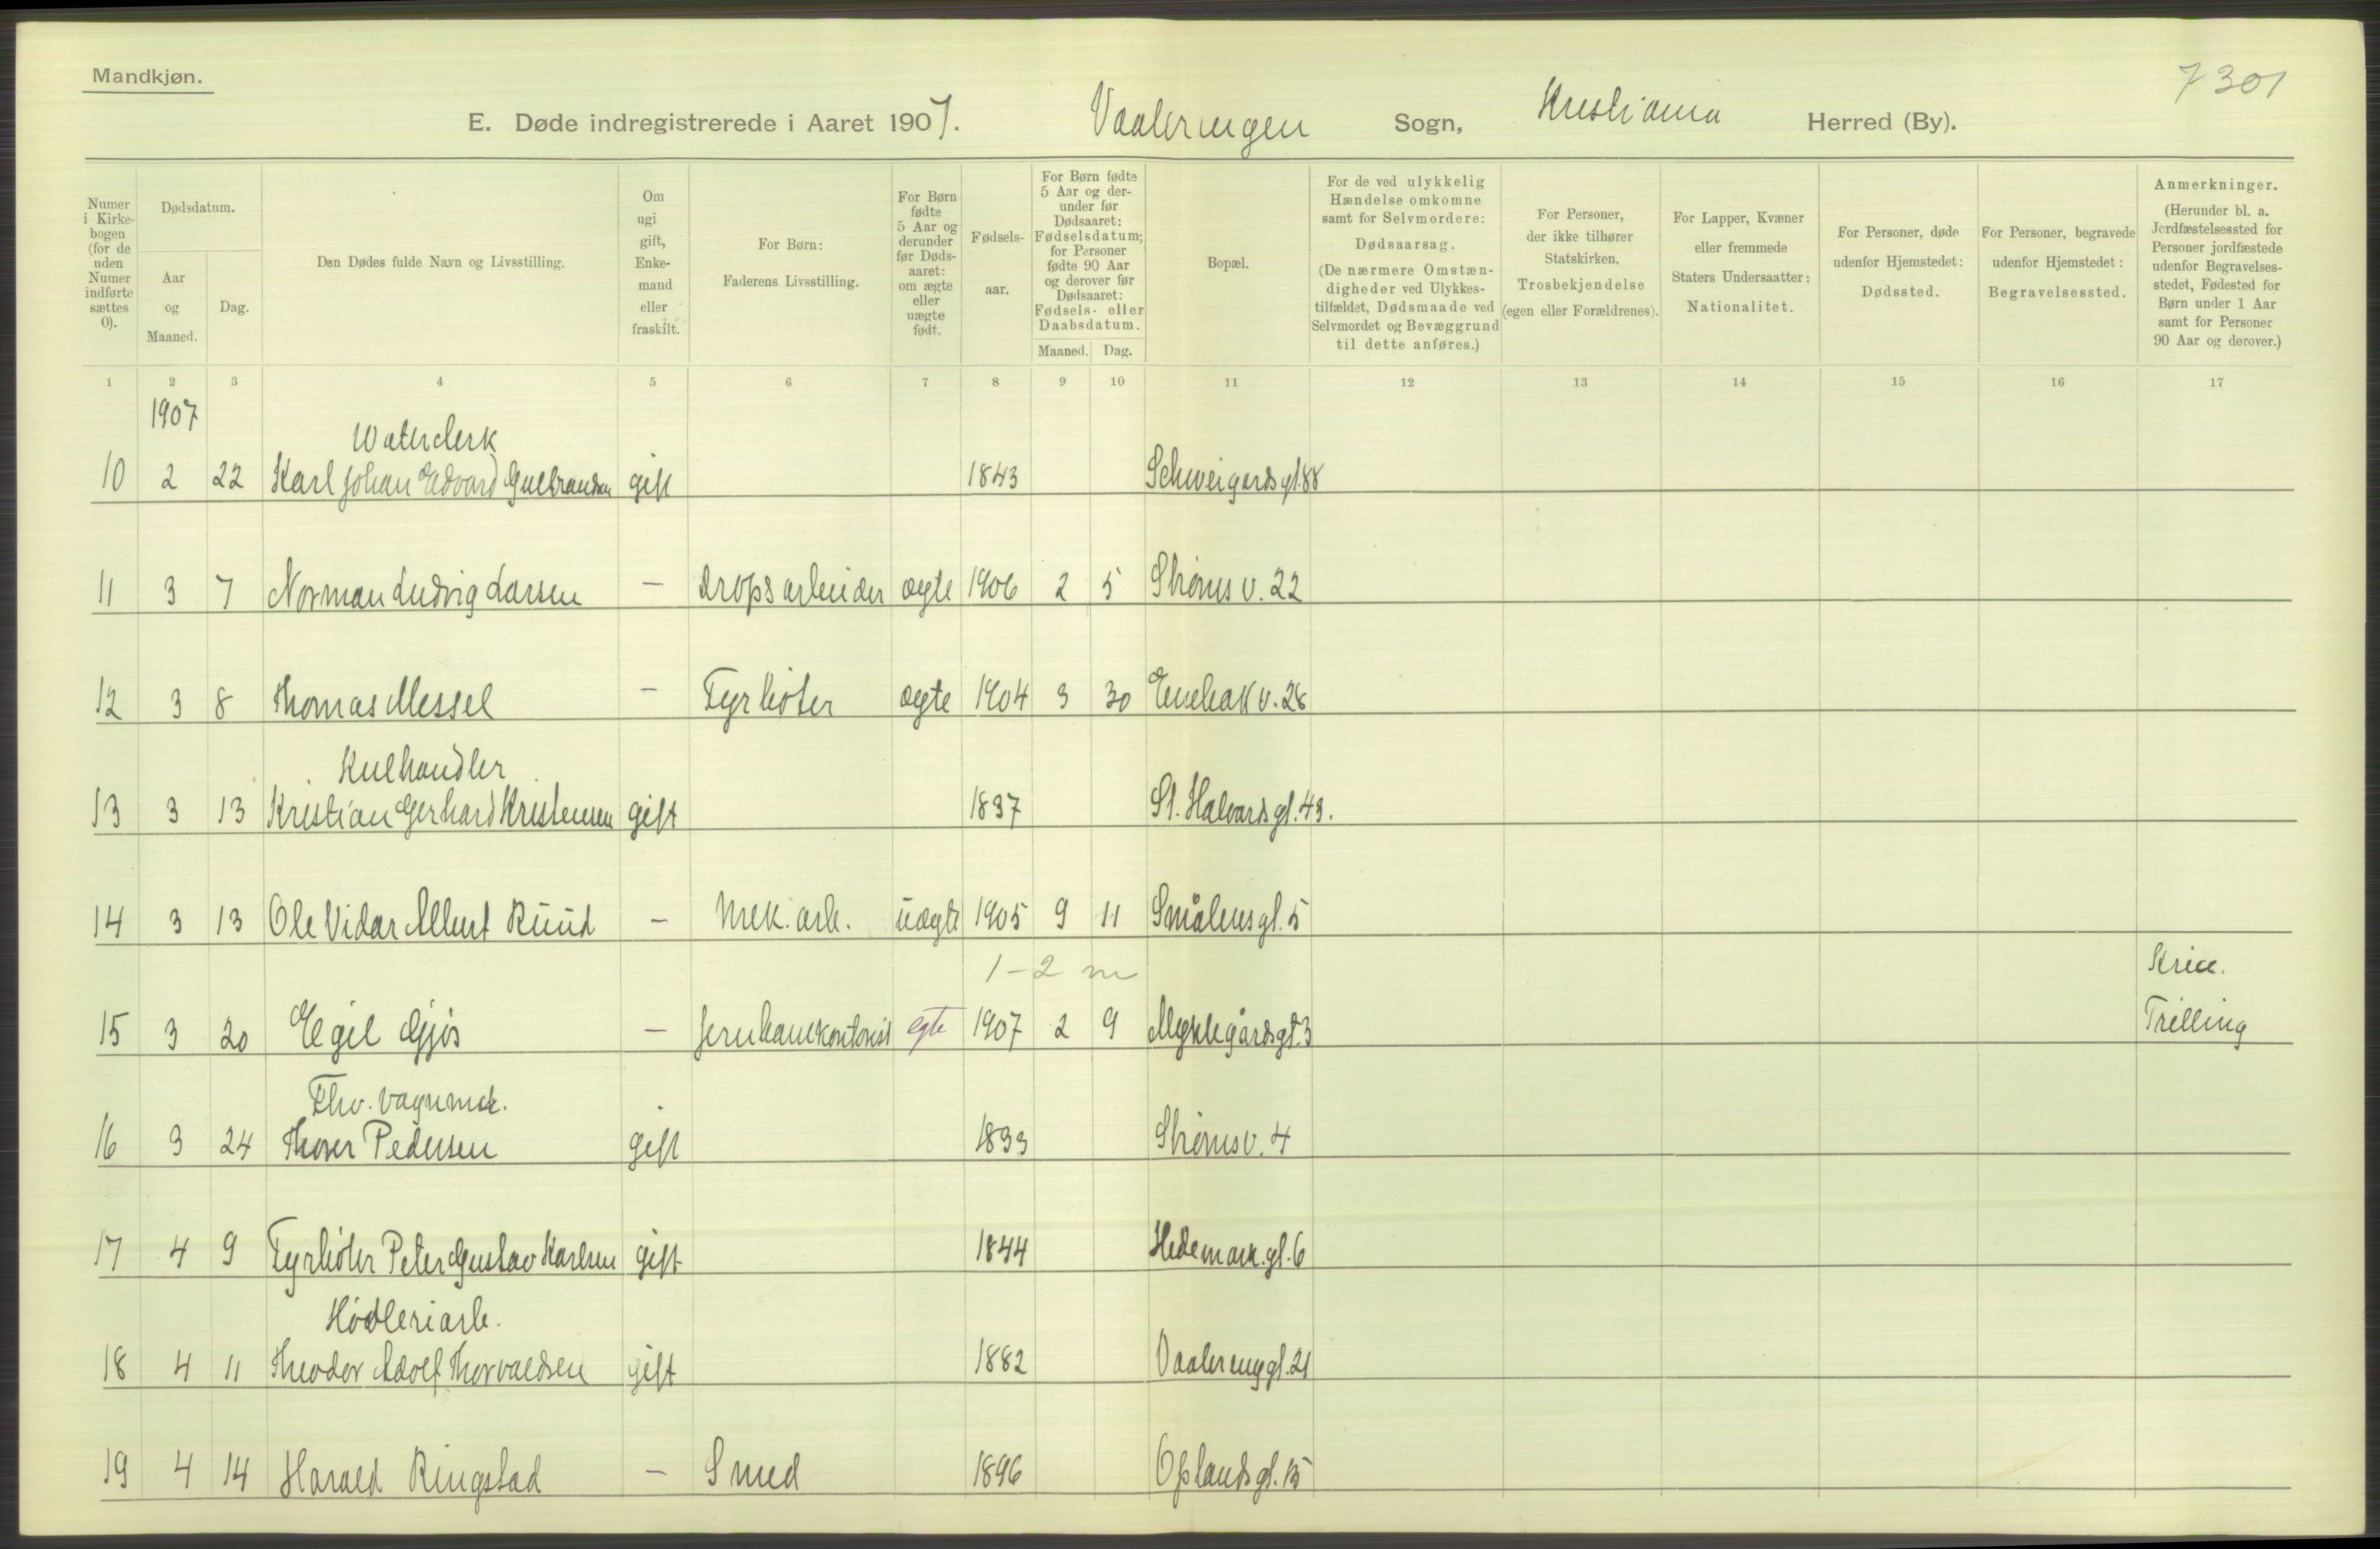 Mandkjøn.
7301
E. Døde indregistrerede i Aaret 1907. Vaalerengen Sogn, Kristiania Herred (By).
Numer i Kirke-bogen (for de uden Numer indførte sættes 0).
Dødsdatum.
Aar og Maaned.
Dag.
Den Dødes fulde Navn og Livsstilling.
Om ugi gift, Enke-mand eller fraskilt.
For Børn:
Faderens Livsstilling.
For Børn fødte 5 Aar og derunder før Døds-aaret: om ægte eller uægte født.
Fødsels-aar.
For Børn fødte 5 Aar og der-under før Dødsaaret: Fødselsdatum; for Personer fødte 90 Aar og derover før Dødsaaret: Fødsels- eller Daabsdatum.
Maaned. Dag.
Bopæl.
For de ved ulykkelig Hændelse omkomne samt for Selvmordere:
Dødsaarsag.
(De nærmere Omstæn-digheder ved Ulykkes-tilfældet, Dødsmaade ved Selvmordet og Bevæggrund til dette anføres.)
For Personer, der ikke tilhører Statskirken,
Trosbekjendelse
(egen eller Forældrenes).
For Lapper, Kvæner eller fremmede Staters Undersaatter:
Nationalitet.
For Personer, døde udenfor Hjemstedet:
Dødssted.
For Personer, begravede udenfor Hjemstedet:
Begravelsessted.
Anmerkninger.
(Herunder bl. a. Jordfæstelsessted for Personer jordfæstede udenfor Begravelses-stedet, Fødested for Børn under 1 Aar samt for Personer 90 Aar og derover.)
1 2 3 4 5 6 7 8 9 10 11 12 13 14 15 16 17
1907
Waterclerk
10 2 22 Karl Johan Edvard Gulbrandsen gift 1843 Schweigardsgt. 88
11 3 7 Norman Ludvig Larsen — Dropsarbeider ægte 1906 2 5 Strømsv. 22
12 3 8 Thomas Messel — Fyrbøter ægte 1904 3 30 Enebakv. 28
Kulhandler
13 3 13 Kristian Gerhard Kristensen gift 1837 St. Halvardsgt. 43.
14 3 13 Ole Vidar Albert Ruud — Mek. arb. uægte 1905 9 11 Smålensgt. 5
1-2 m
Kria.
15 3 20 Egil Gjøs — Jernbanekontorist egte 1907 2 9 Mynkegårdsgt. 3 Trilling
Fhv. vognmd.
16 3 24 Thorer Pedersen gift 1833 Strømsv. 4
17 4 9 Fyrbøter Peter Gustav Karlsen gift 1844 Hedemark.gt. 6
Høvleriarb.
18 4 11 Theodor Adolf Thorvaldsen gift 1882 Vaalerenggt. 21
19 4 14 Harald Ringstad — Smed 1896 Oplandsgt. 15